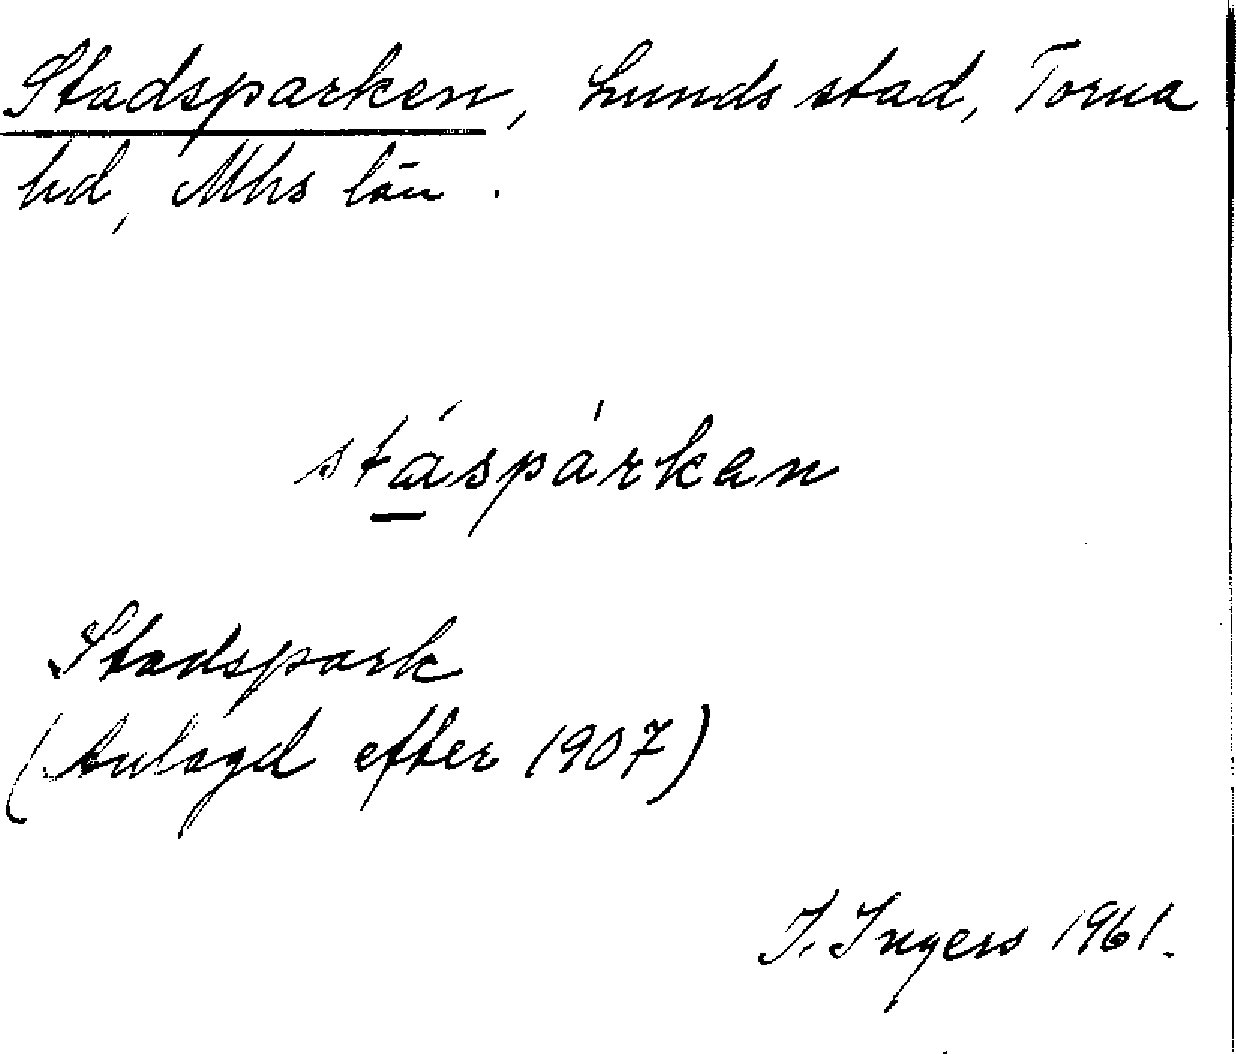 Stadsparken, Lunds stad, Torna
hd, Mhs län.
stáspárkan
Stadspark
(Anlagd efter 1907)
I. Ingers 1961.